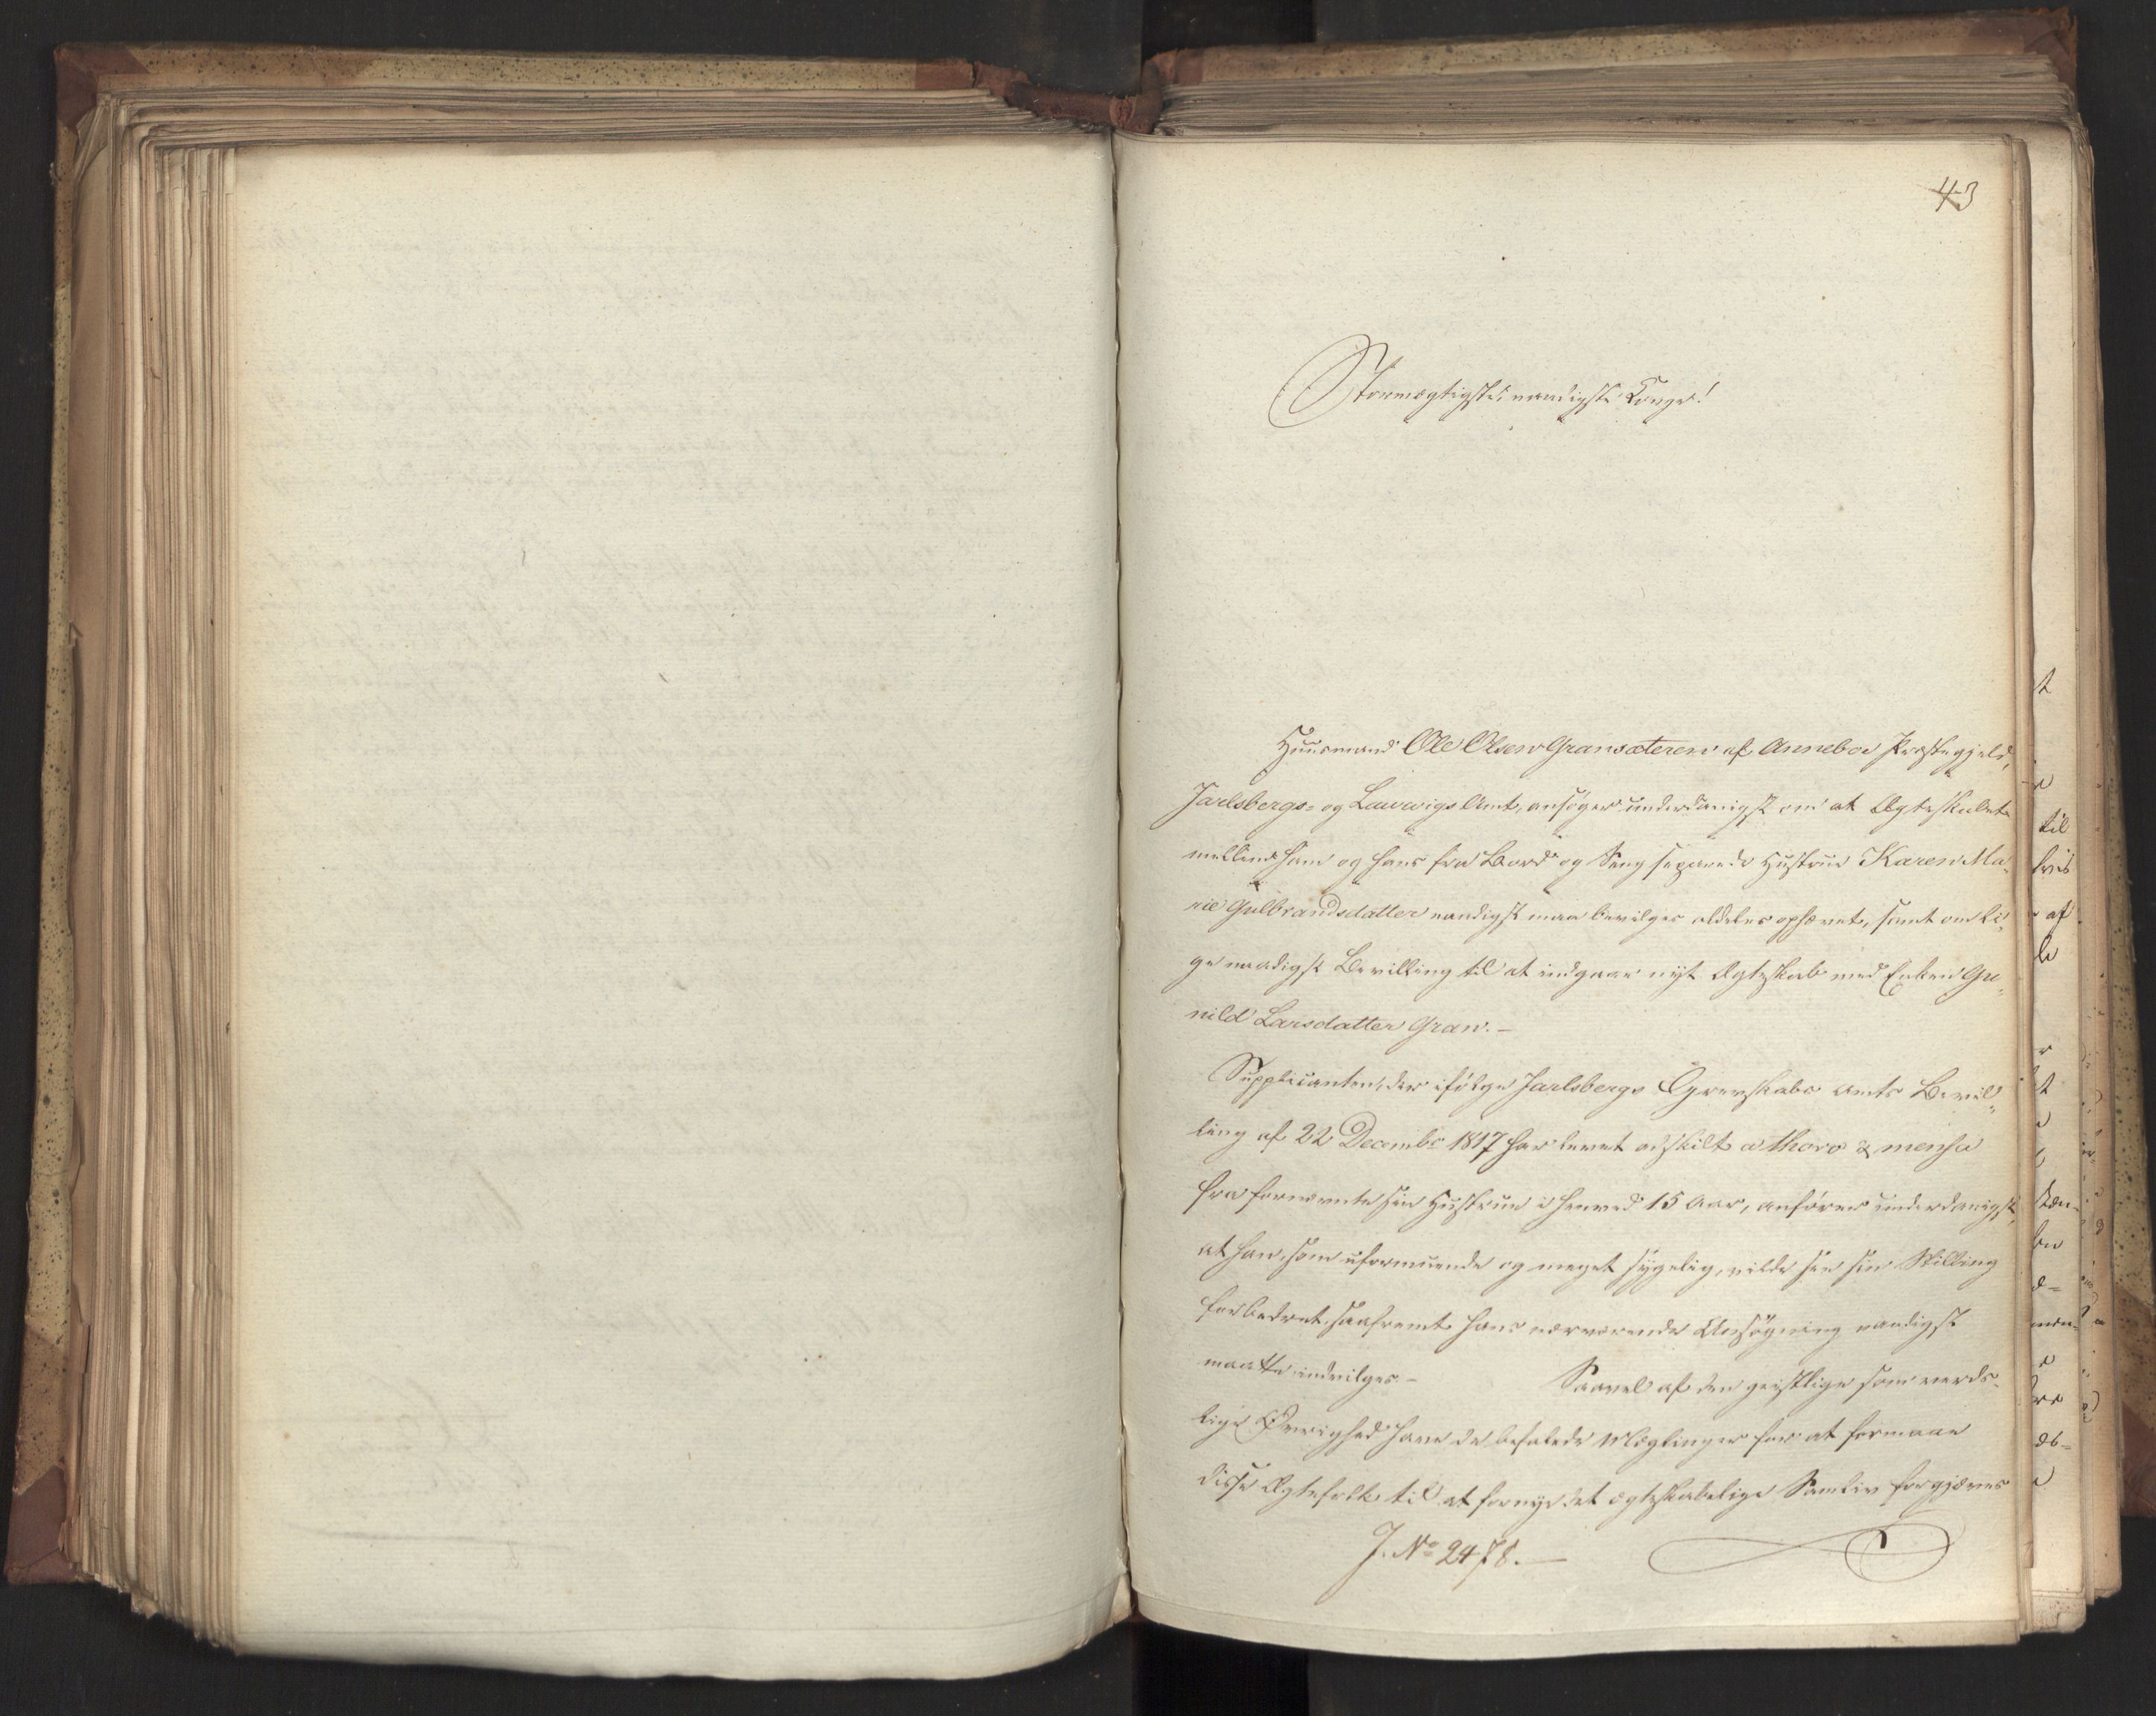 43
Stormægtigste, naadigste Konge!
Huusmand Ole Olsen Gransæteren af Anneboe Præstegjeld,
Jarlsbergs- og Laurvigs Amt, ansøger underdanigst om at Ægteskabet
mellem ham og hans fra Bord og Seng separerede Hustrue Karen Ma„
rie Gulbrandsdatter naadigst maa bevilges aldeles ophævet, samt om li„
ge naadigst Bevilling til at indgaae nyt Ægteskab med Enken Gu„
nild Larsdatter Gran.-
Supplicanten, der ifølge Jarlsbergs Grevskabs Amts Bevil„
ling af 22 Decembr 1817 har levet adskilt a thoro & mensa
fra fornævnte sin Hustrue i henved 15 Aar, anfører underdanigst,
at han, som uformuende og meget sygelig, vilde see sin Stilling
forbedret, saafremt hans nærværende Ansøgning naadigst
maatte indvilges.- Saavel af den geistlige som verds-
lige Øvrighed have de befalede Mæglinger for at formaae
disse Ægtefolk til at fornye det ægteskabelige Samliv forgjæves
J. No 2478.-